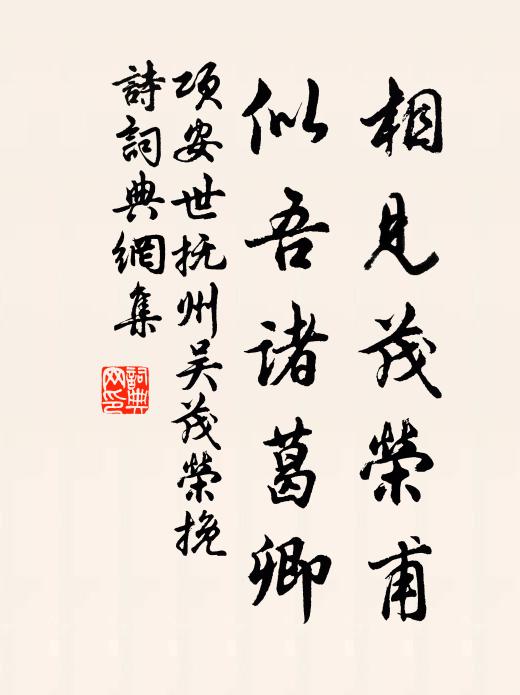 相見茂榮甫
似吾诸葛卿
项安世抚州吴茂榮挽
詩詞典網集